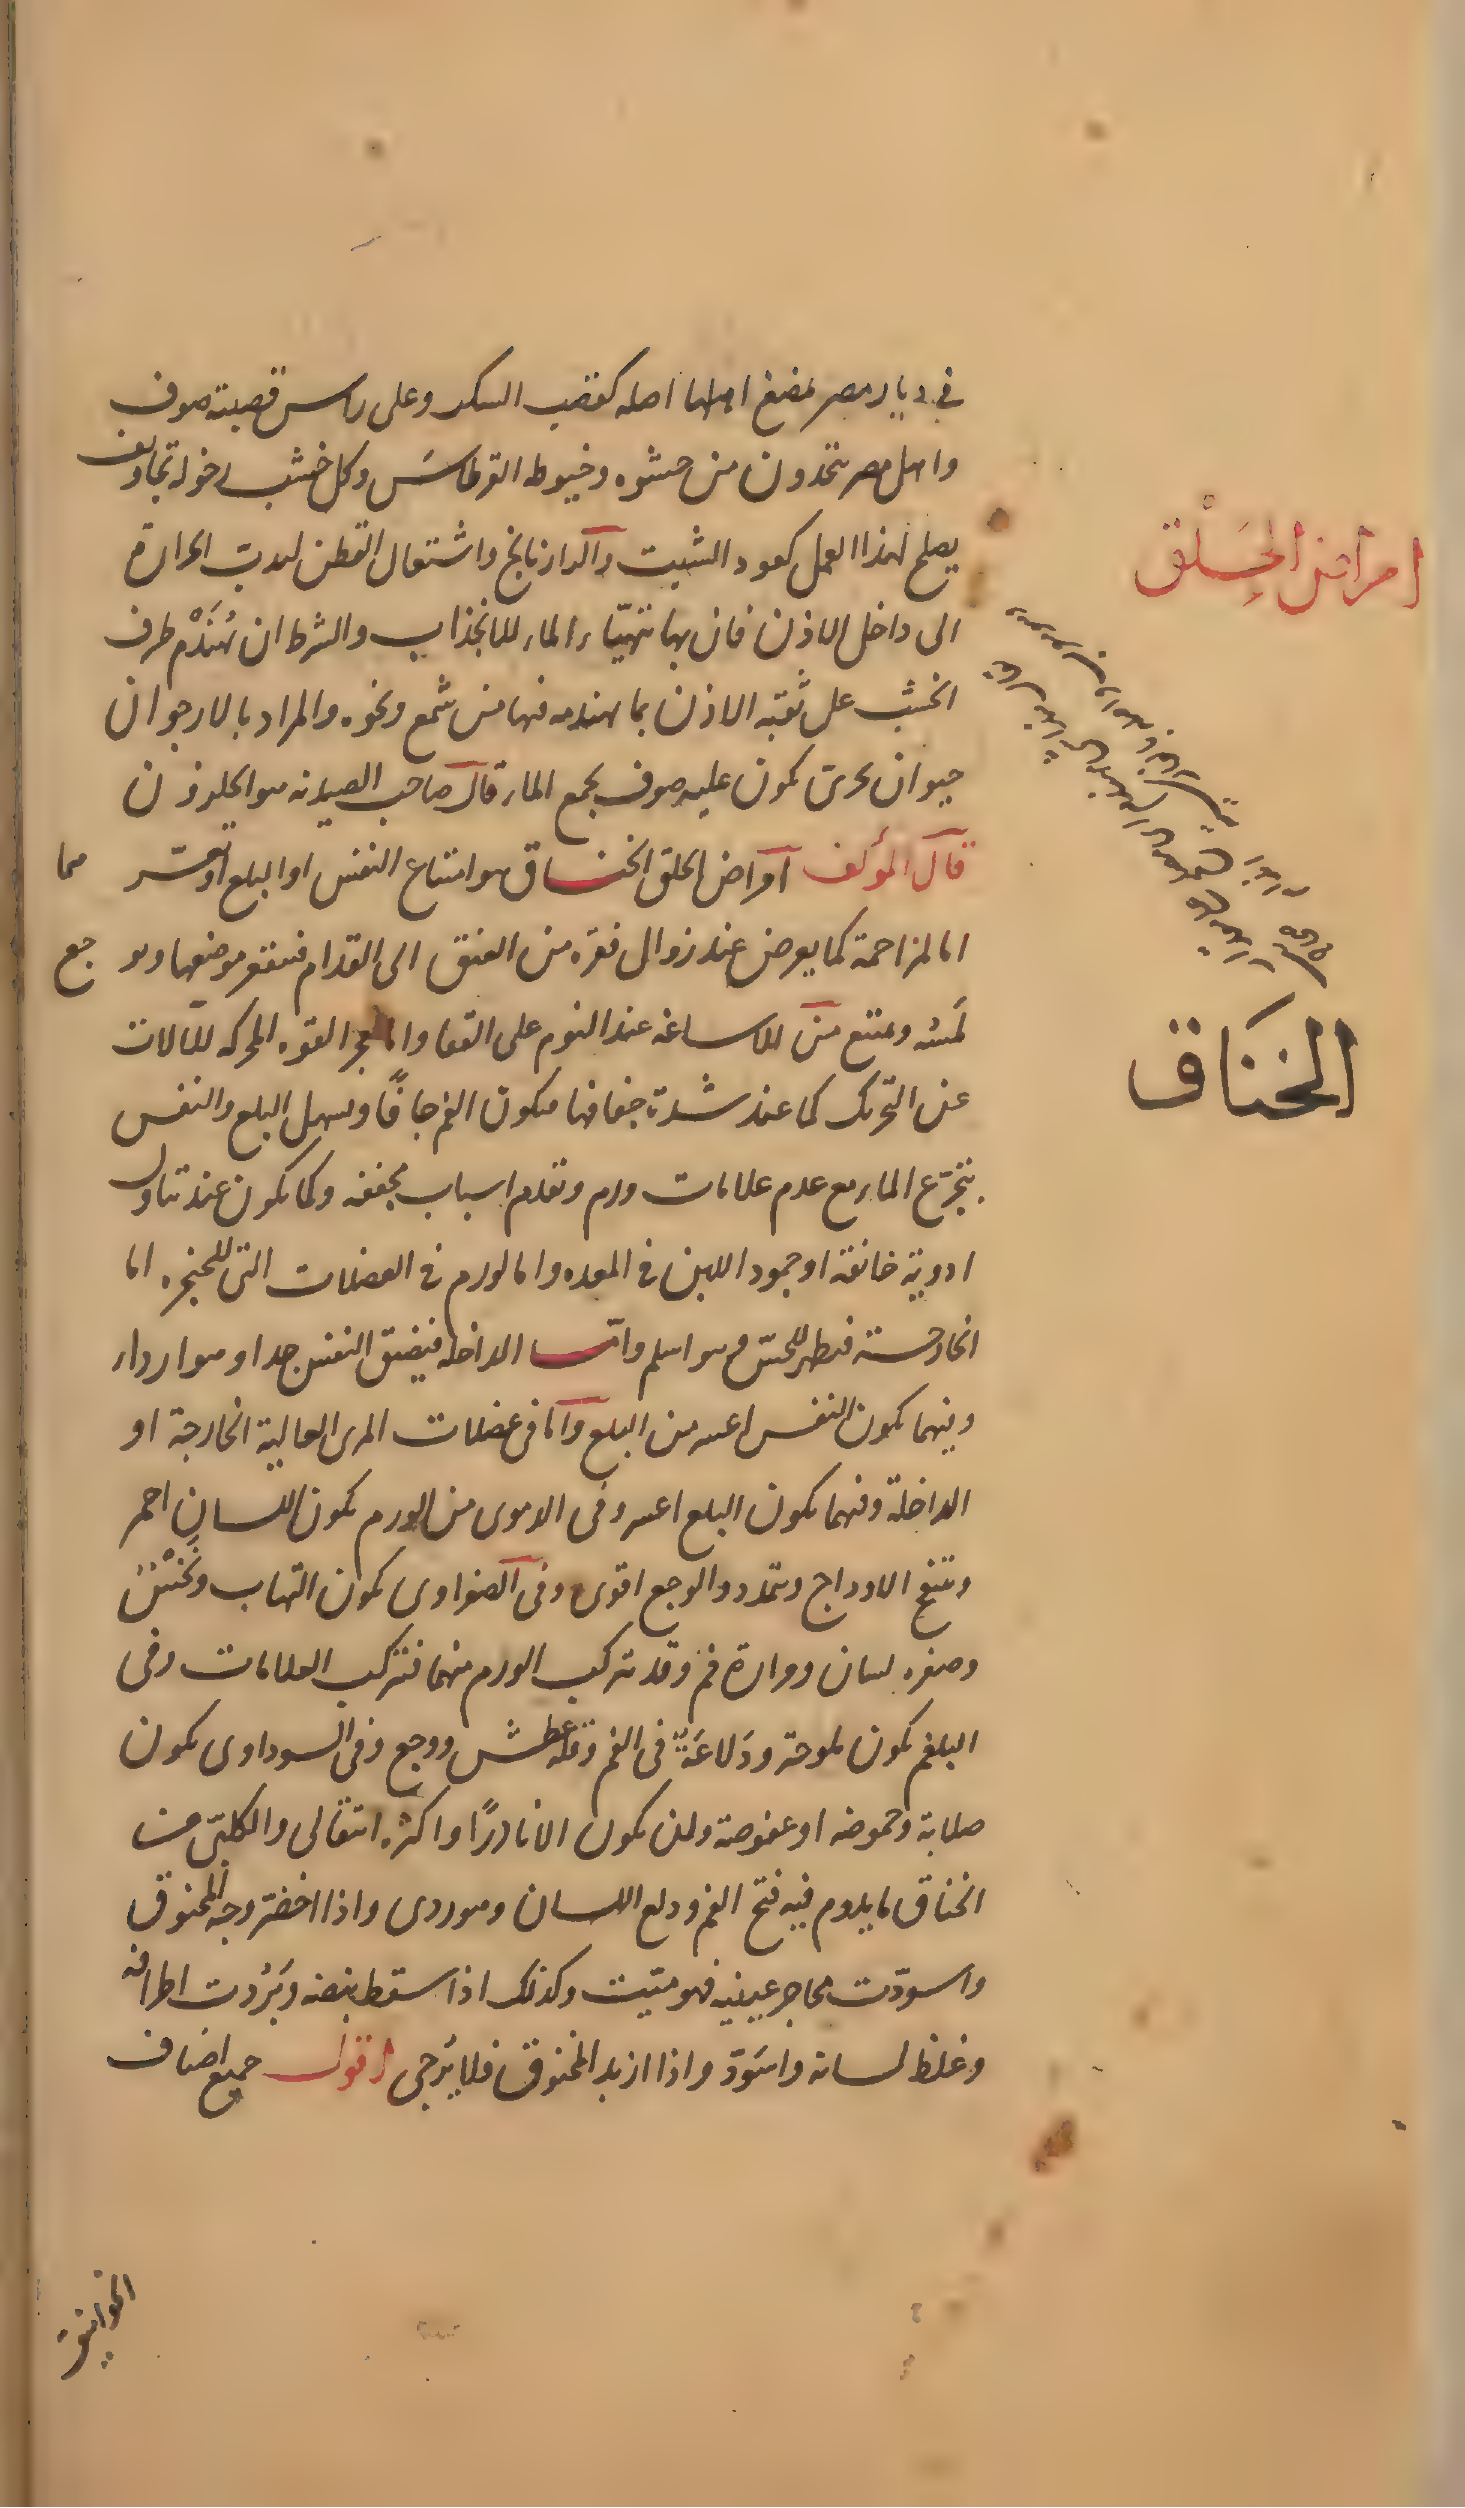 امراض الحلق
الخناق
في ديار مصر يمضغ اهلها اصله كقضب السكر وعلى راس قصبته صوف
واهل مصر يتخذون من حشوه وخيوطه القرطاس وكل خشب رخو له تجاويف
يصلح لهذا العمل كعود الشبت والرازيانج واشتعال القطن لهدب الحرارة
الى داخل الاذن فان بها تتهيّاء الماء للانجذاب والشرط ان يُهَنْدَم طرف
الخشب على ثقبه الاذن بما يهندمه فيها من شمع ونحوه والمراد بالارجوان
حيوان بحرى يكون عليه صوف يجمع الماء قال صاحب الصيدنه هو الحلزون
قال المؤلف امراض الحلق الخناق هو امتناع النفس او البلع او تعسّر هما
اما لمزاحمة كما يعرض عند زوال فقره من العنق الى القدام فيتقعر موضعها ويوجع
لمسه ويمتنع من الاساغه عند النوم على القفا واما لعجز القوه المحركه للآلات
عن التحريك كما عند شدة جفافها فيكون الفم جافًا ويسهل البلع والنفس
بتجرّع الماء مع عدم علامات ورم وتقدم اسباب مجففه وكما يكون عند تناول
ادوية خانقة او جمود اللبن في المعده واما لورم في العضلات التى للحنجره اما
الخارجة فيظهر للحسّ وهو اسلم وامّا الداخله فيضيق النفس جدا وهو اردا
وفيهما يكون النفس اعسر من البلع واما فى عضلات المرى العالية الخارجة او
الداخلة وفيهما يكون البلع اعسر وفى الدموى من الورم يكون اللسان احمر
وتنتفخ الاوداج وتتمدد والوجع اقوى وفى الصفراوى يكون التهاب ونخس
وصفره لسان ومرارة فم وقد يتركب الورم منهما فتتركب العلامات وفى
البلغم يكون ملوحة ودَلاعَة فى الفم وقله عطش ووجع وفى السوداوى يكون
صلابة وحموضه او عفوصة ولن يكون الا نادرًا واكثره انتقالى والكلبىّ من
الخناق ما يدوم فيه فتح الفم ودلع اللسان وهو ردى واذا اخضرّ وجه المخنوق
واسودّت محاجر عينيه فهو ميّت وكذلك اذا سقط نبضه وبَرُدت اطرافه
وغلظ لسانه واسْوَدّ واذا ازبد المخنوق فلا يُرجى اقول جميع اصناف
الخوانيق